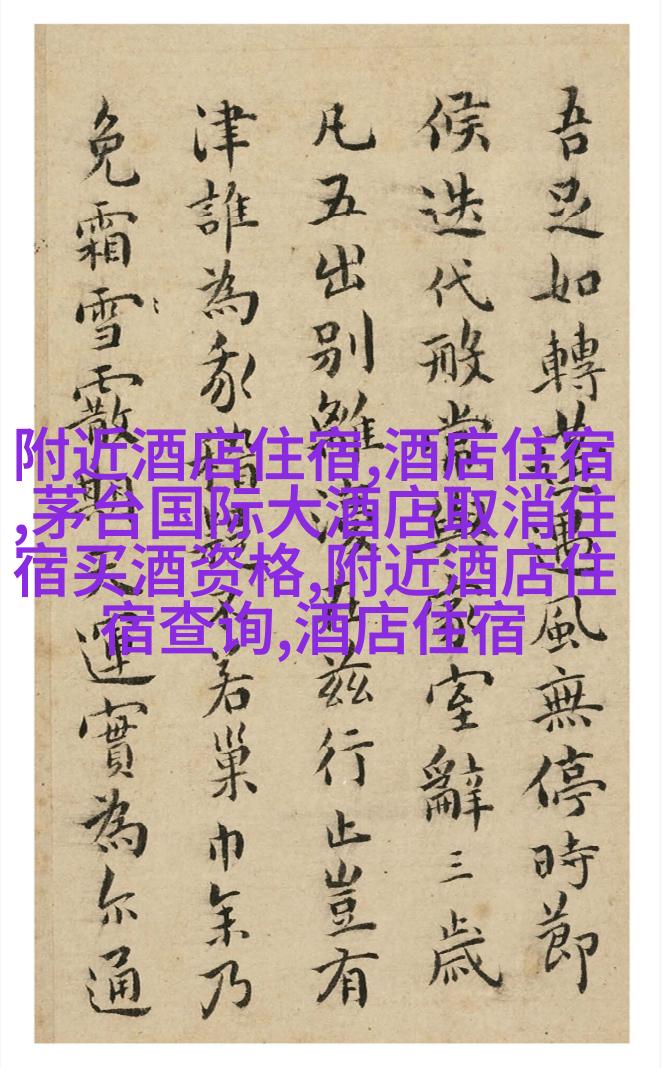 吾足如轉蓬遇風無停時節
候迭代般常與家室辭三歲
凡五出別離茲行止豈有
津誰為若巢巾乃
免霜雪霰期天運實為尔通
附近酒店住宿,酒店住宿
,茅台国际大酒店取消住
宿买酒资格,附近酒店住
宿查询,酒店住宿